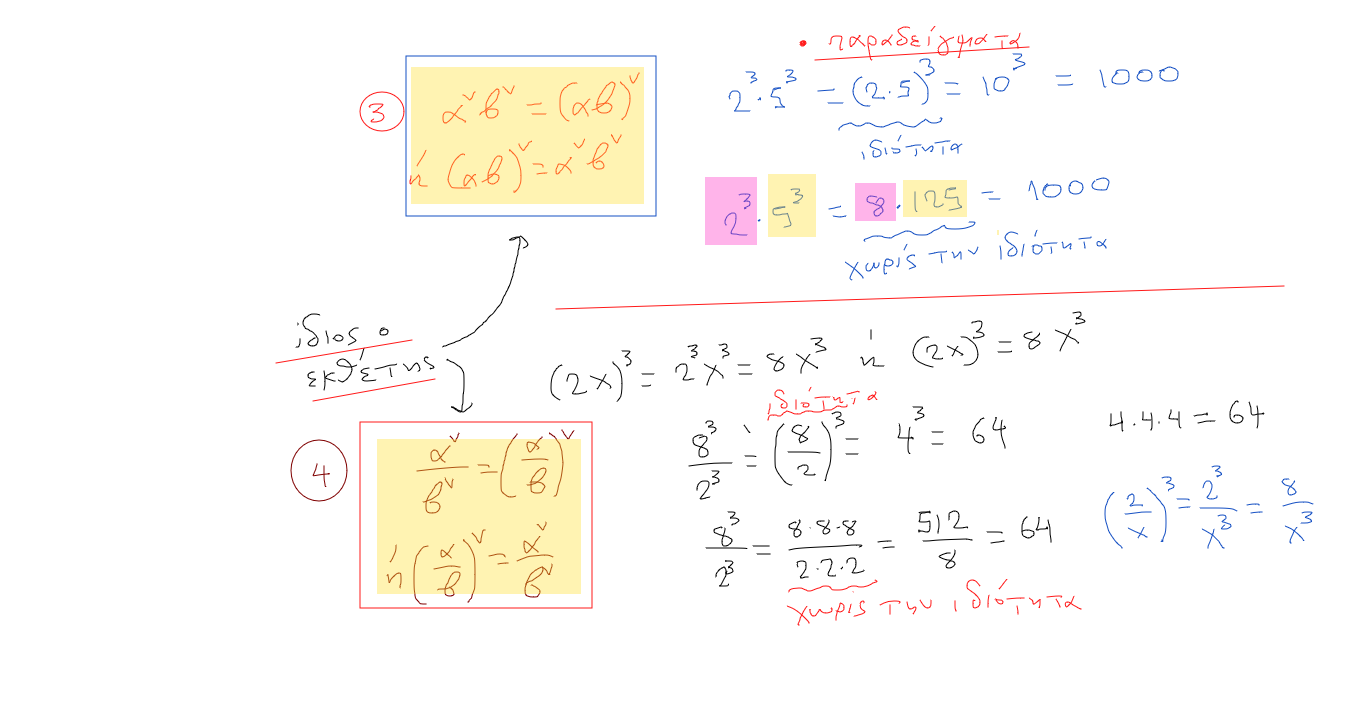 • παραδείγματα
③ α^ν β^ν = (αβ)^ν
ή (αβ)^ν = α^ν β^ν
2^3 · 5^3 = (2·5)^3 = 10^3 = 1000
ιδιότητα
2^3 · 5^3 = 8 · 125 = 1000
χωρίς την ιδιότητα
ίδιος ο
εκθέτης
(2x)^3 = 2^3 x^3 = 8x^3 ή (2x)^3 = 8x^3
ιδιότητα
④ α^ν/β^ν = (α/β)^ν
ή (α/β)^ν = α^ν/β^ν
8^3/2^3 = (8/2)^3 = 4^3 = 64
4·4·4 = 64
8^3/2^3 = 8·8·8/2·2·2 = 512/8 = 64
χωρίς την ιδιότητα
(2/x)^3 = 2^3/x^3 = 8/x^3